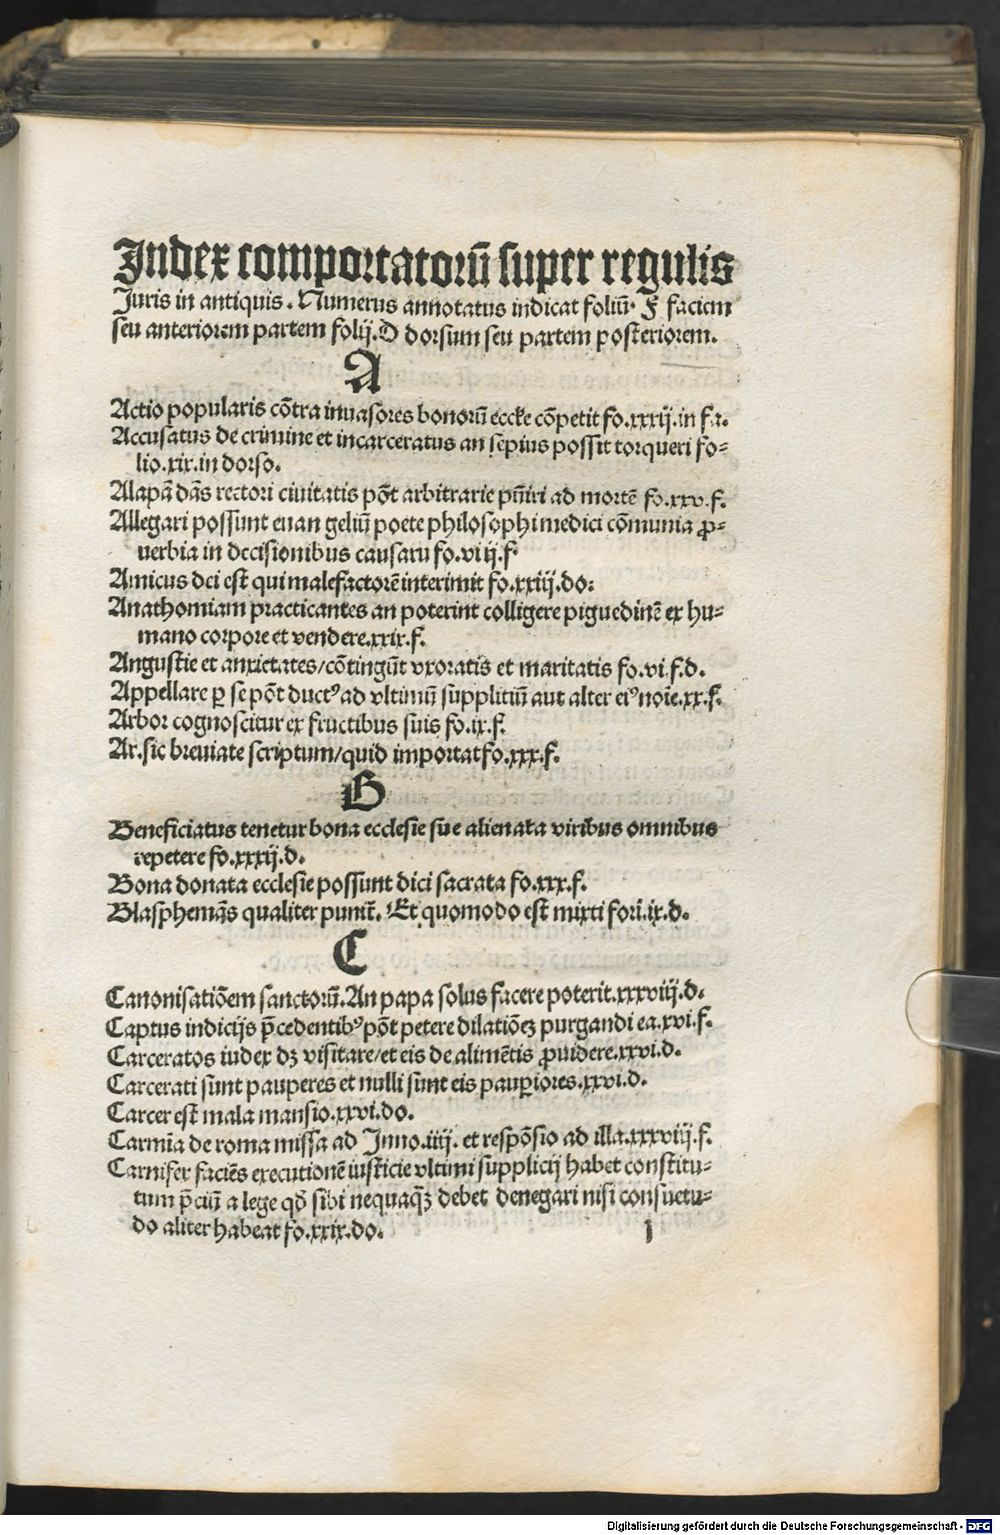 Index comportatorū super regulis
Juris in antiquis. Numerus annotatus indicat foliū. F faciem
seu anteriorem partem folij. D dorsum seu partem posteriorem.
A
Actio popularis cōtra inuasores bonorū eccl̄e cōpetit fo.xxxij.in fa.
Accusatus de crimine et incarceratus an sepius possit torqueri fo⸗
lio.xix.in dorso.
Alapā dās rectori ciuitatis pōt arbitrarie pūiri ad mortē fo.xxv.f.
Allegari possunt euan geliū poete philosophi medici cōmunia ꝓ⸗
uerbia in decisionibus causaru fo.viij.f
Amicus dei est qui malefactorē interimit fo.xxiij.do:
Anathomiam practicantes an poterint colligere piguedinē ex hu⸗
mano corpore et vendere.xxix.f.
Angustie et anxietates/cōtingūt vxoratis et maritatis fo.vi.f.d.
Appellare ꝑ se pōt ductꝰ ad vltimū supplitiū aut alter eiꝰ noīe.xx.f.
Arbor cognoscitur ex fructibus suis fo.ix.f.
Ar.sic breuiate scriptum/quid importat fo.xxx.f.
B
Beneficiatus tenetur bona ecclesie sue alienata viribus omnibus
repetere fo.xxxij.d.
Bona donata ecclesie possunt dici sacrata fo.xxx.f.
Blasphemās qualiter punit̄. Et quomodo est mixti fori.ix.d.
C
Canonisatiōem sanctorū. An papa solus facere poterit.xxxviij.d.
Captus indicijs p̄cedentibꝰ pōt petere dilatiōeꝫ purgandi ea.xvi.f.
Carceratos iudex dꝫ visitare/et eis de alimētis ꝓuidere.xxvi.d.
Carcerati sunt pauperes et nulli sunt eis pauꝑiores.xxvi.d.
Carcer est mala mansio.xxvi.do.
Carmīa de roma missa ad Inno.iiij. et respōsio ad illa.xxxviij.f.
Carnifex faciēs executionē iusticie vltimi supplicij habet constitu⸗
tum p̄ciū a lege qd̄ sibi nequaqꝫ debet denegari nisi consuetu⸗
do aliter habeat fo.xxix.do.
I
Digitalisierung gefördert durch die Deutsche Forschungsgemeinschaft - DFG